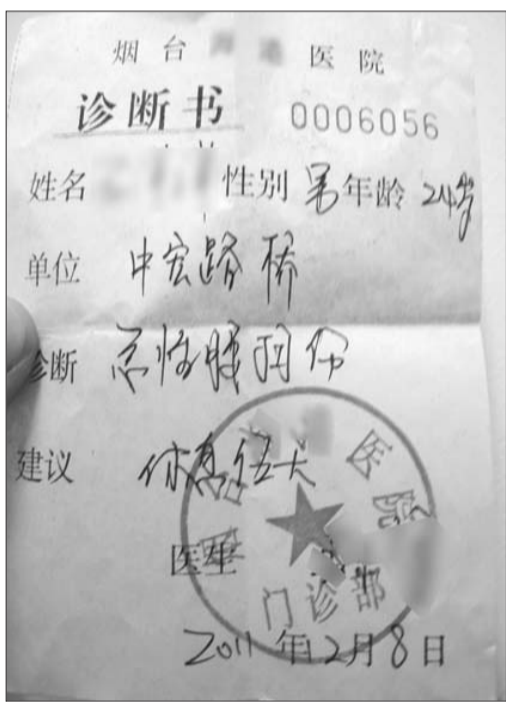 烟台 医院
诊断书 0006056
姓名 性别 男 年龄 24岁
单位 中宏路桥
诊断 急性腰扭伤
建议 休息伍天
医生
医院
门诊部
2011年2月8日